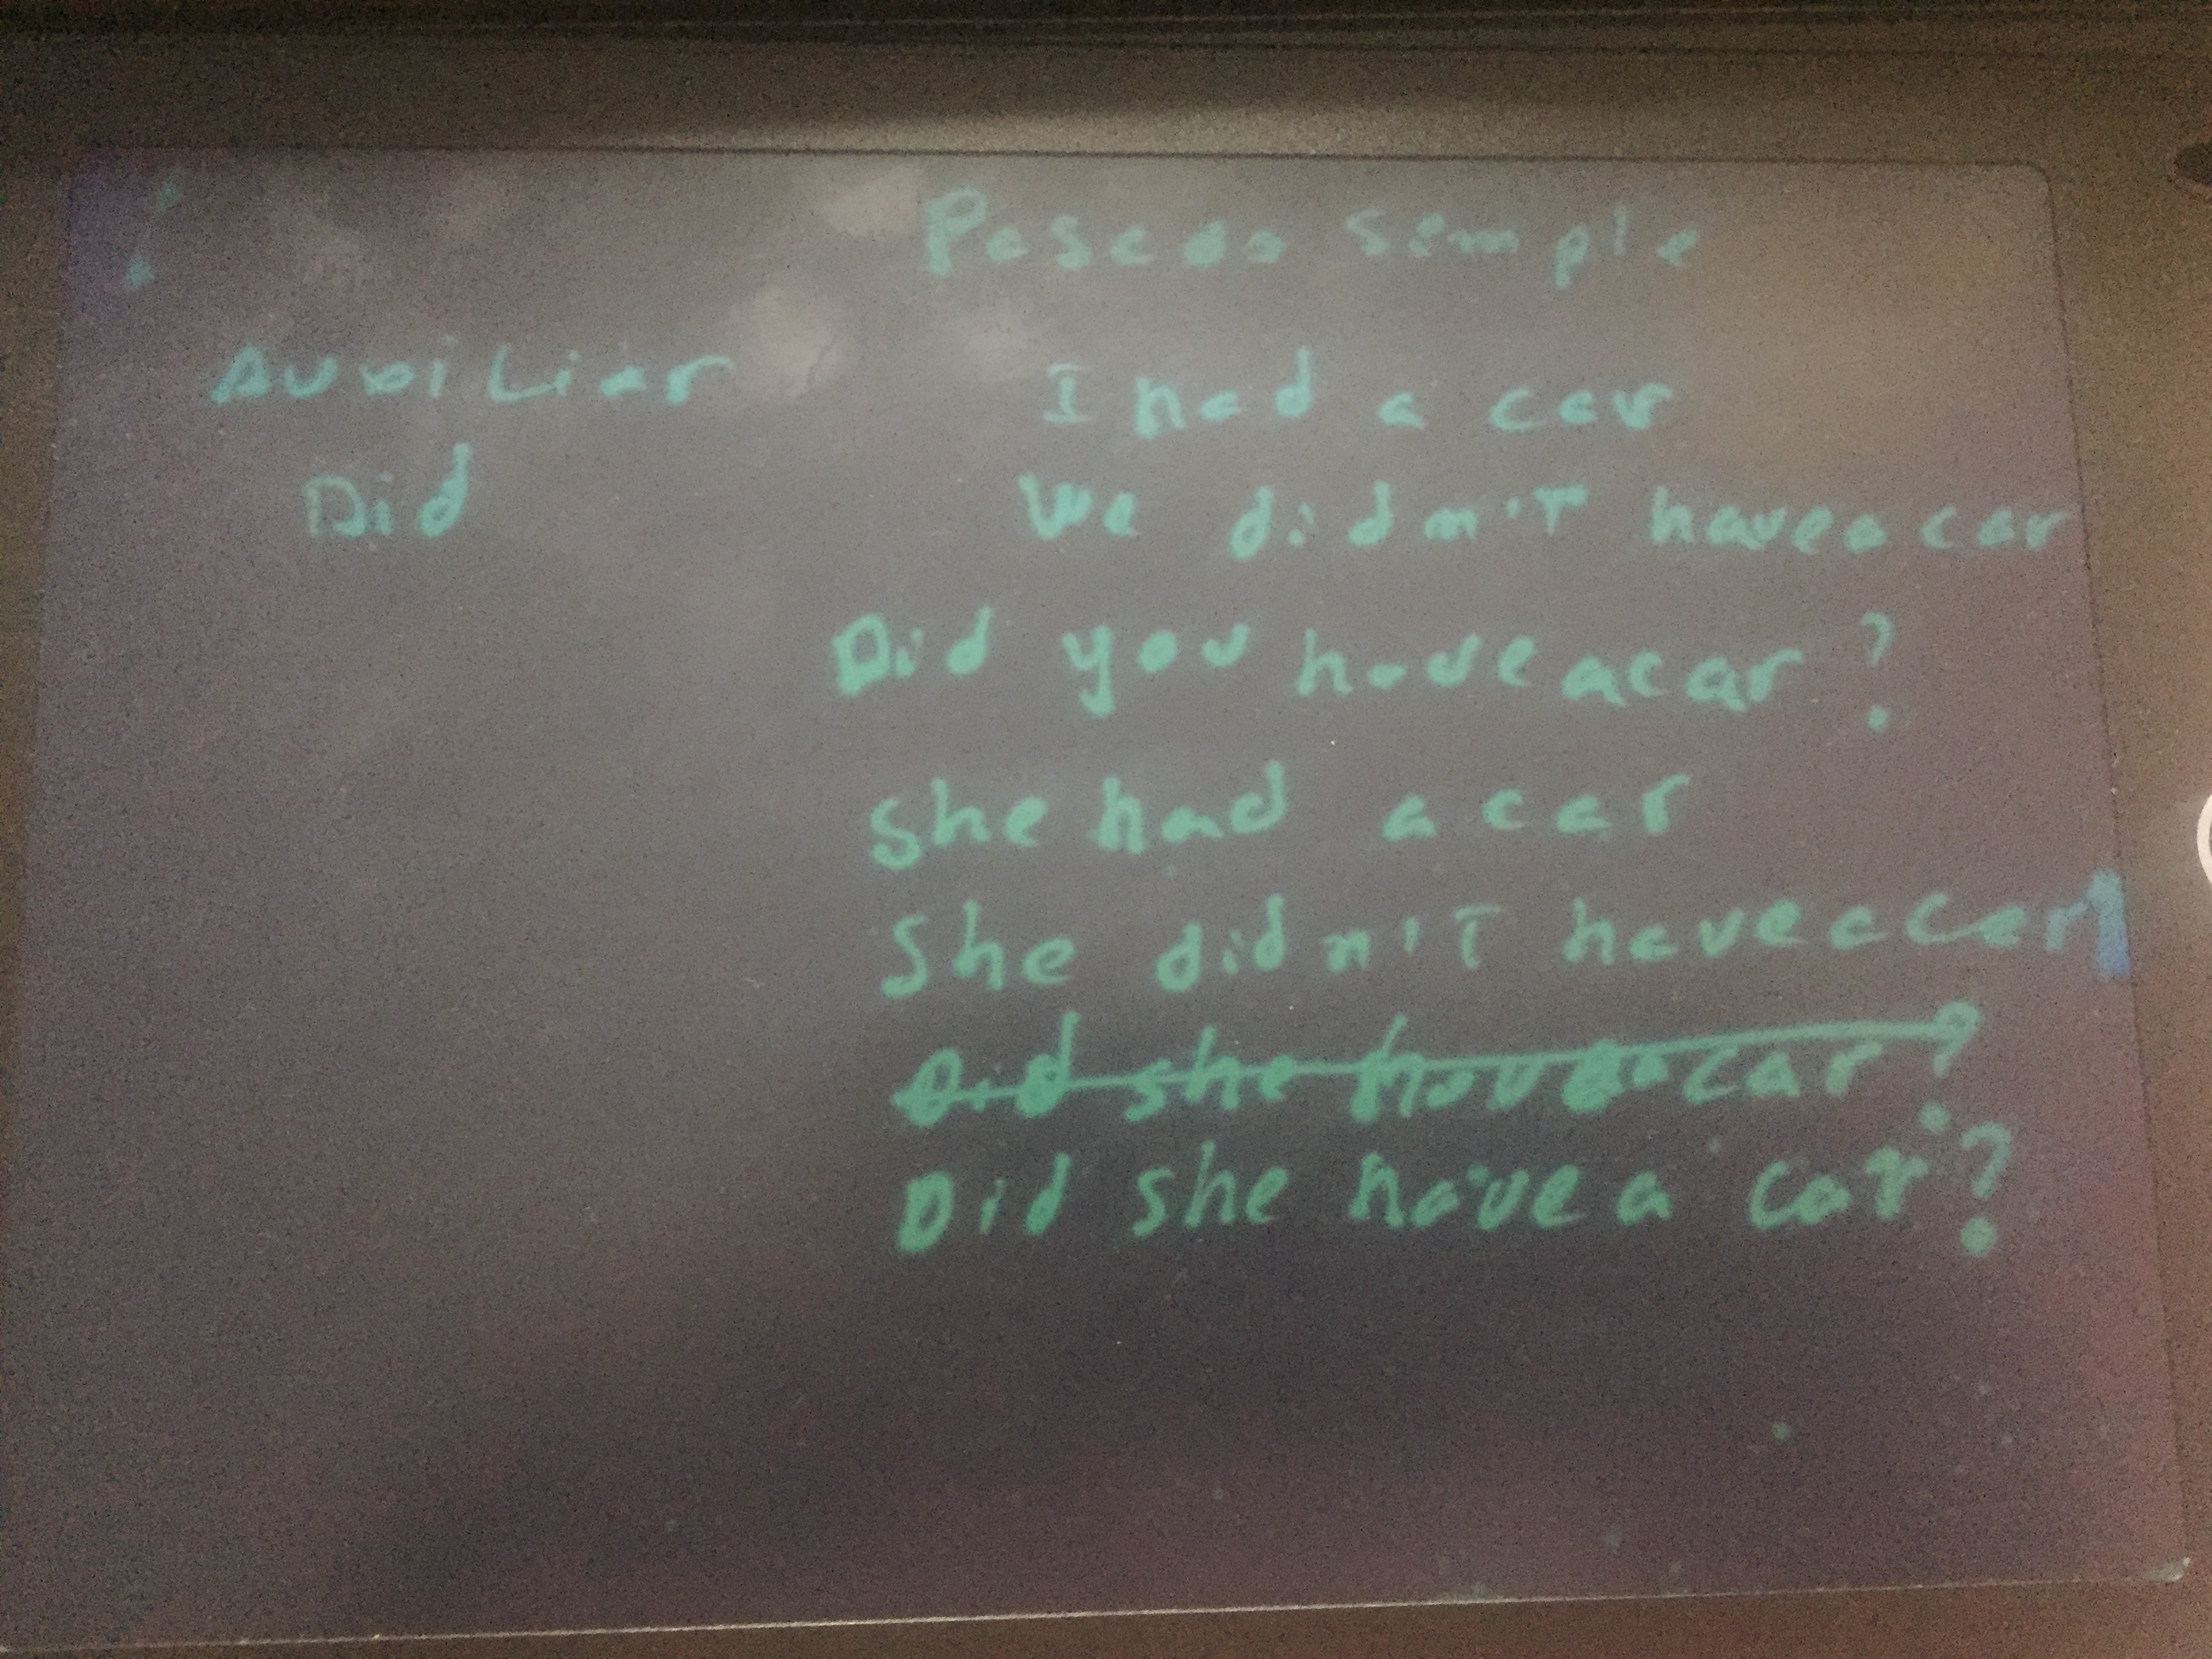 Pasado Semple
Auxiliar
I had a car
Did
We didn'T have a car
Did you have a car?
She had a car
She didn'T have a car
Did she have a car?
Did she have a car?